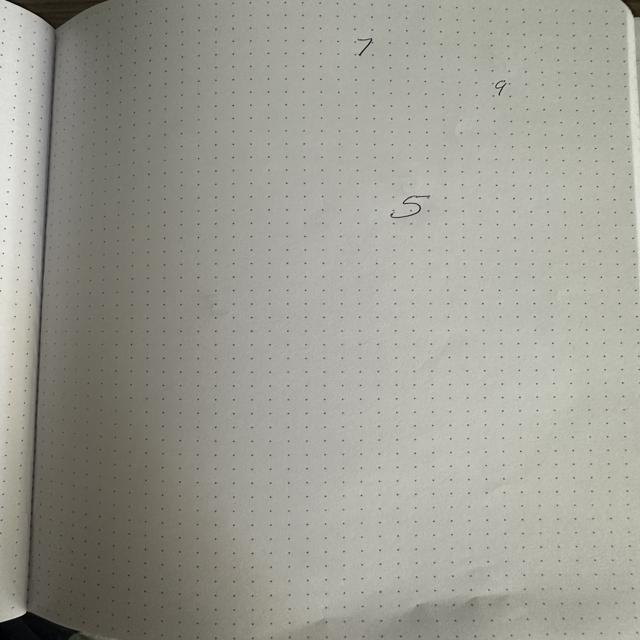 7
9
5